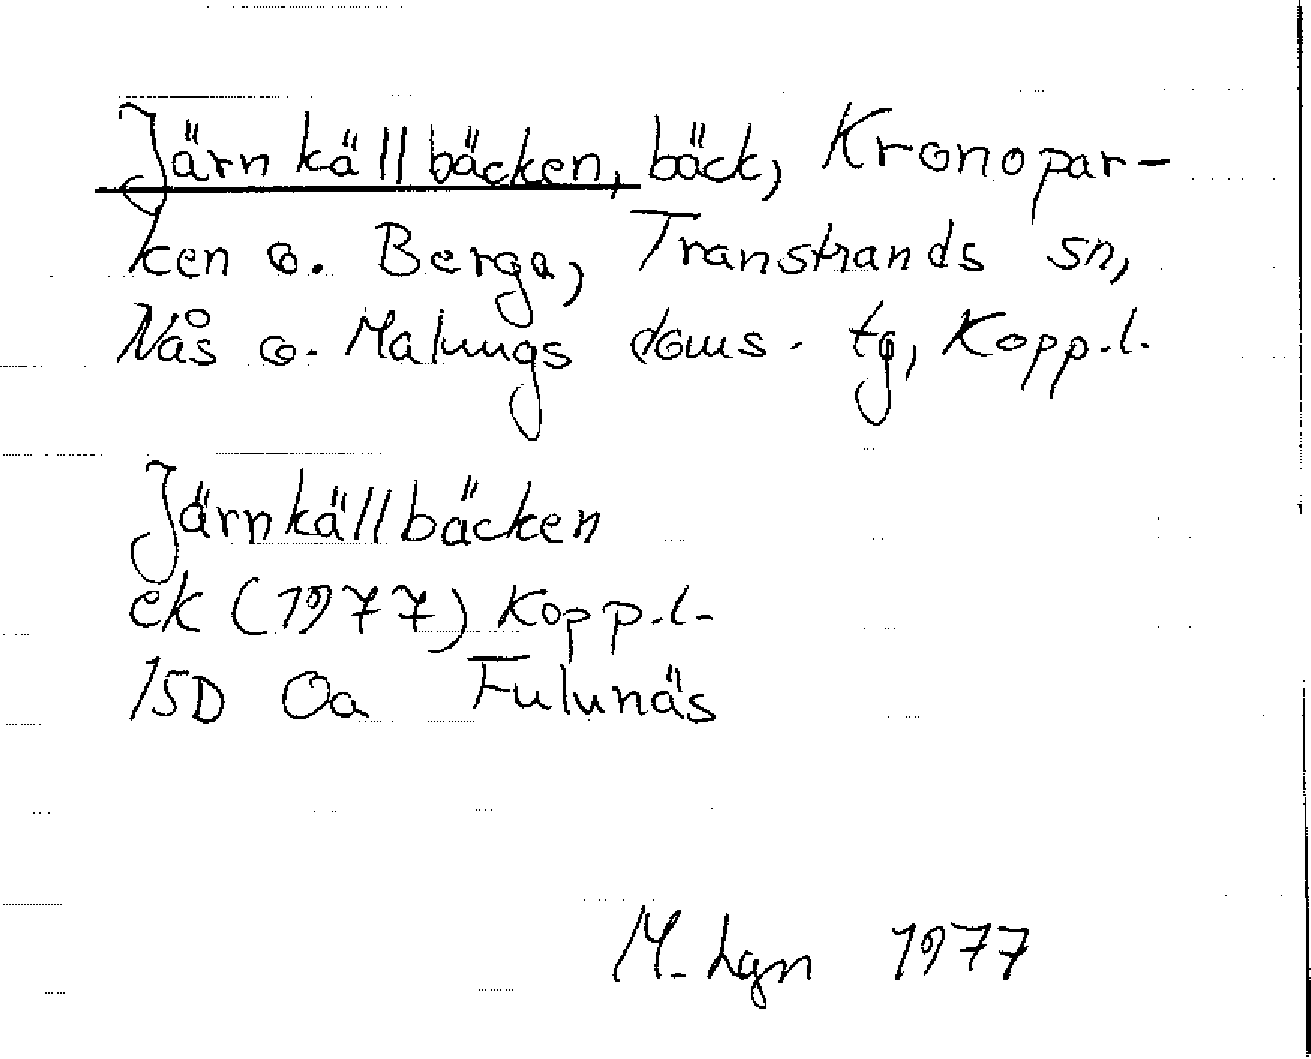 Järnkällbäcken, bäck, Kronopar-
ken o. Berga, Transtrands sn,
Nås o. Malungs doms. tg, Kopp.l.
Järnkällbäcken
ek (1977) Kopp.l.
15D 0a Fulunäs
M. Lgn 1977